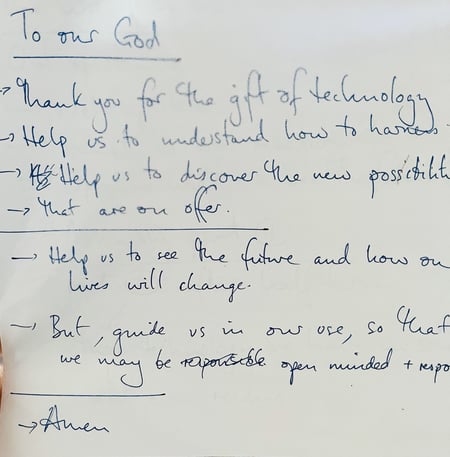 To our God
→ Thank you for the gift of technology
→ Help us to understand how to harness
→ Help us to discover the new possibilit
→ that are on offer.
→ Help us to see the future and how ou
lives will change.
→ But, guide us in our use, so that
we may be responsible open minded + respo
→ Amen